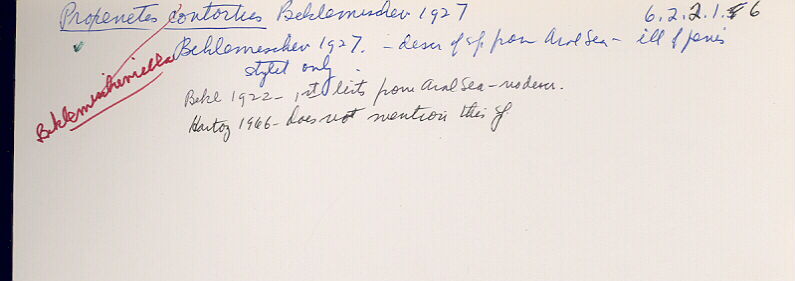 Propenetes contortus Beklemischev 1927 6.2.2.1.6
Beklemeschev 1927. - descr of sp from Aral Sea - ill of penis
stylet only.
Beklemischeviella
Bekl 1922 - 1st lists from Aral Sea - no descr.
Hartog 1966 - does not mention this sp